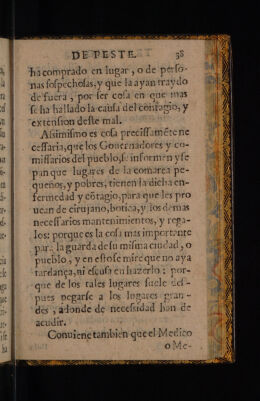 DE PESTE. 38
ha comprado en lugar, o de perso-
nas sospechosas, y que la ayan traydo
de fuera, por ser cosa en que mas
se ha hallado la causa del contagio, y
extension deste mal.
Assimismo es cosa precissaméte ne
cessaria, que los Gouernadores y co-
missarios del pueblo, se informen y se
pan que lugares de la comarca pe-
queños, y pobres, tienen la dicha en-
fermedad y cótagio, para que les pro
uean de cirujano, botica, y los demas
necessarios mantenimientos, y rega-
los: porque es la cosa mas importante
para la guarda de su misma ciudad, o
pueblo, y en esto se mire que no aya
tardança, ni escusa en hazerlo: por-
que de los tales lugares suele des-
pues pegarse a los lugares gran-
des, adonde de necessidad han de
acudir.
Conuiene tambien que el Medico
o Me-